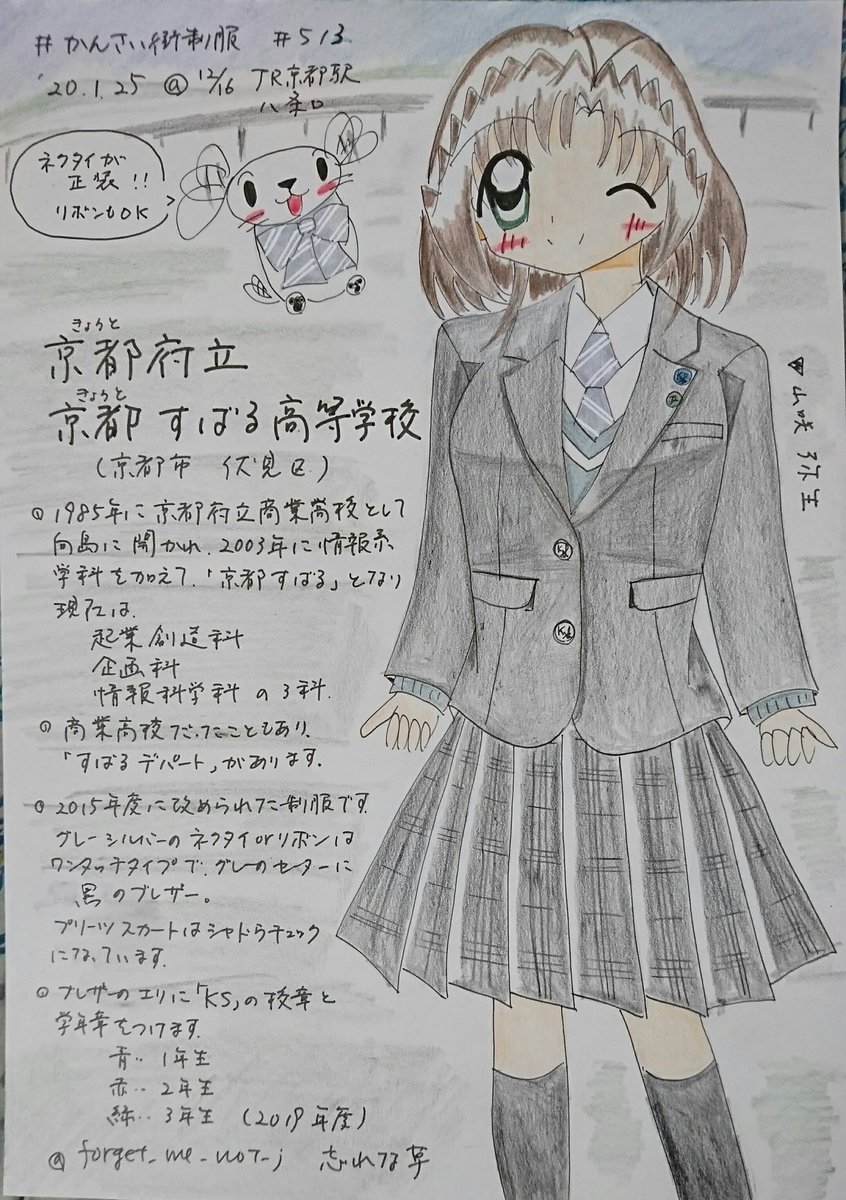 #かんさい街制服 #513
'20.1.25 @ 12/16 JR京都駅
八条口
ネクタイが
正装!!
リボンもOK
きょうと
京都府立
きょうと
京都すばる高等学校
(京都市 伏見区)
▼山咲 弥生
1985年に京都府立商業高校として
向島に開かれ、2003年に情報系
学科を加えて、「京都すばる」となり
現在は、
起業創造科
企画科
情報科学科 の3科.
商業高校だったこともあり、
「すばるデパート」があります.
2015年度に改められた制服です.
グレーシルバーのネクタイorリボンは
ワンタッチタイプで、グレーのセーターに
黒のブレザー。
プリーツスカートはシャドウチェック
になっています.
ブレザーのエリに「KS」の校章と
学年章をつけます.
青‥1年生
赤‥2年生
緑‥3年生 (2019年度)
@forget_me_not_j 忘れな草
KS
KS